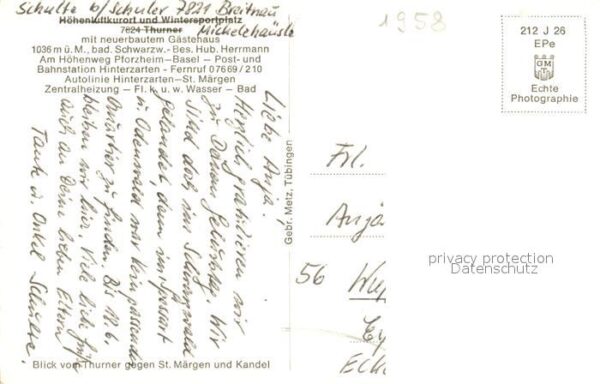 Schulte b/ Schuler 7821 Breitnau
Michelehäusle
Höhenluftkurort und Wintersportplatz
7824 Thurner
mit neuerbautem Gästehaus
1036 m ü. M., bad. Schwarzw. - Bes. Hub. Herrmann
Am Höhenweg Pforzheim—Basel — Post- und
Bahnstation Hinterzarten - Fernruf 07669/210
Autolinie Hinterzarten—St. Märgen
Zentralheizung — Fl. k. u. w. Wasser — Bad
Liebe Anja!
Herzlich gratulieren wir
zu Deinem Geburtstag. Wir
sind doch im Schwarzwald
gelandet, denn im
im Odenwald war kein passendes
Quartier zu finden. Bis 18.6.
bleiben wir hier. Viele liebe Grüße
auch an Deine lieben Eltern
Tante u. Onkel Schulte.
Blick vom Thurner gegen St. Märgen und Kandel
Gebr. Metz, Tübingen
1958
212 J 26
EPe
GMT
Echte
Photographie
Frl.
Anja
56 Wup
privacy protection
Datenschutz